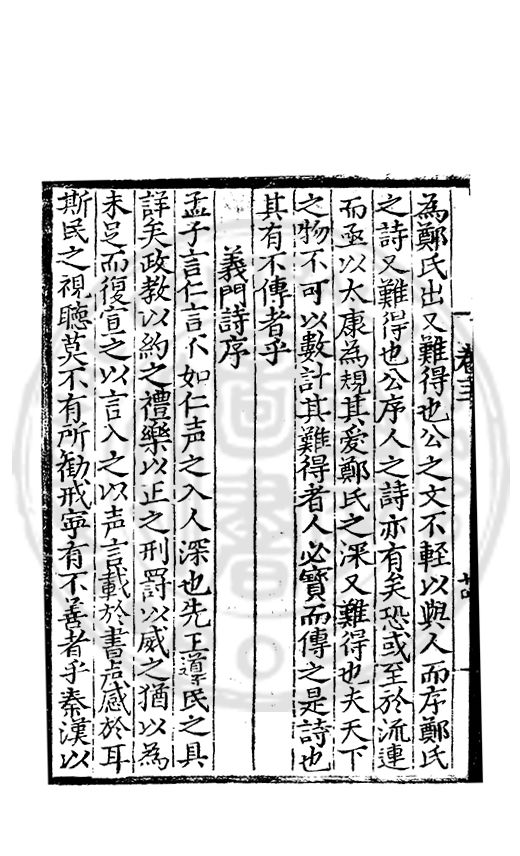 為鄭氏出又難得也公之文不輕以與人而序鄭氏
之詩又難得也公序人之詩亦有矣恐或至於流連
而亟以太康為規其愛鄭氏之深又難得也夫天下
之物不可以數計其難得者人必寶而傳之是詩也
其有不傳者乎
義門詩序
孟子言仁言不如仁声之入人深也先王導民之具
詳矣政教以約之禮樂以正之刑罰以威之猶以為
未足而復宣之以言入之以声言載於書声感於耳
斯民之視聽莫不有所勸戒寜有不善者乎秦漢以